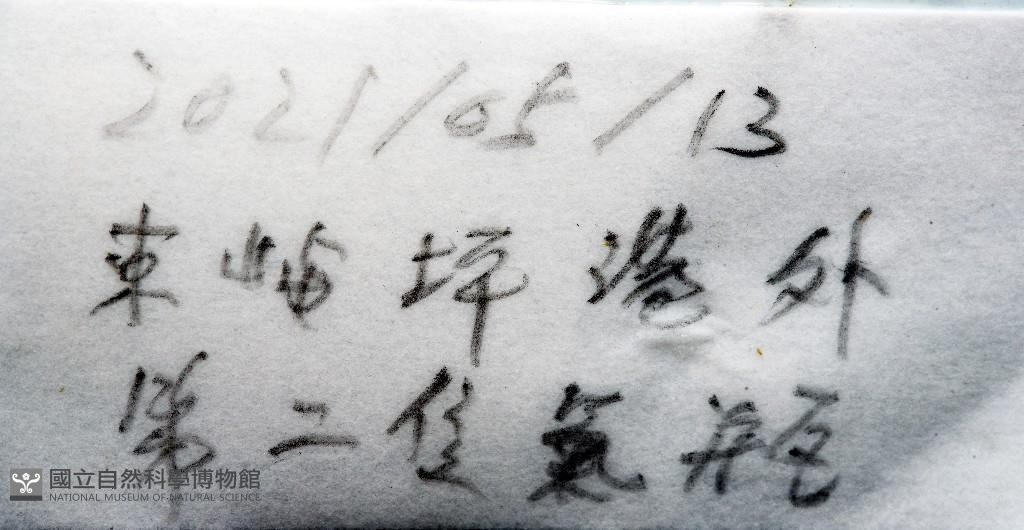 2021/05/13
東峙坪港外
第二隻氣瓶
國立自然科學博物館
NATIONAL MUSEUM OF NATURAL SCIENCE